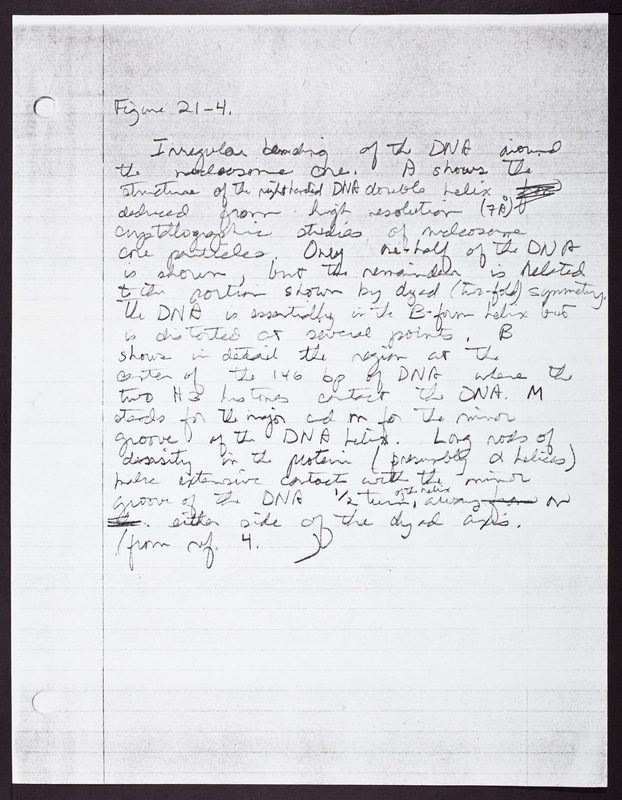 Figure 21-4.
Irregular bending of the DNA around
the nucleosome core. A shows the
structure of the right handed DNA double helix
deduced from high resolution (7Å)
crystallographic studies of nucleosome
core particles. Only one-half of the DNA
is shown, but the remainder is related
to the portion shown by dyad (two-fold) symmetry.
The DNA is essentially in the B-form helix but
is distorted at several points. B
shows in detail the region at the
center of the 146 bp of DNA where the
two H3 histones contact the DNA. M
stands for the major and m for the minor
groove of the DNA helix. Long rods of
density in the protein (presumably α helices)
make extensive contacts with the minor
groove of the DNA 1/2 turn of the helix away on
either side of the dyad axis.
(from ref. 4. )